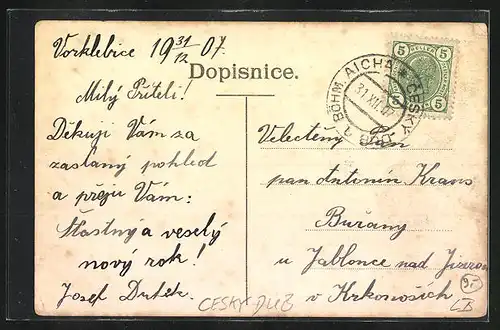 Vorklebice 19 31/12 07.
Dopisnice.
Milý Příteli!
Děkuji Vám za
zaslaný pohled
a přeju Vám:
Šťastný a veselý
nový rok!
Josef Dutek.
5 HELLER 5
5 5
BÖHM. AICHA * ČESKÝ DUB
31.XII.07
Velectěný Pan
pan Antonín Kraus
Buřany
u Jablonce nad Jizerou
v Krkonoších
CESKY DUB
LB